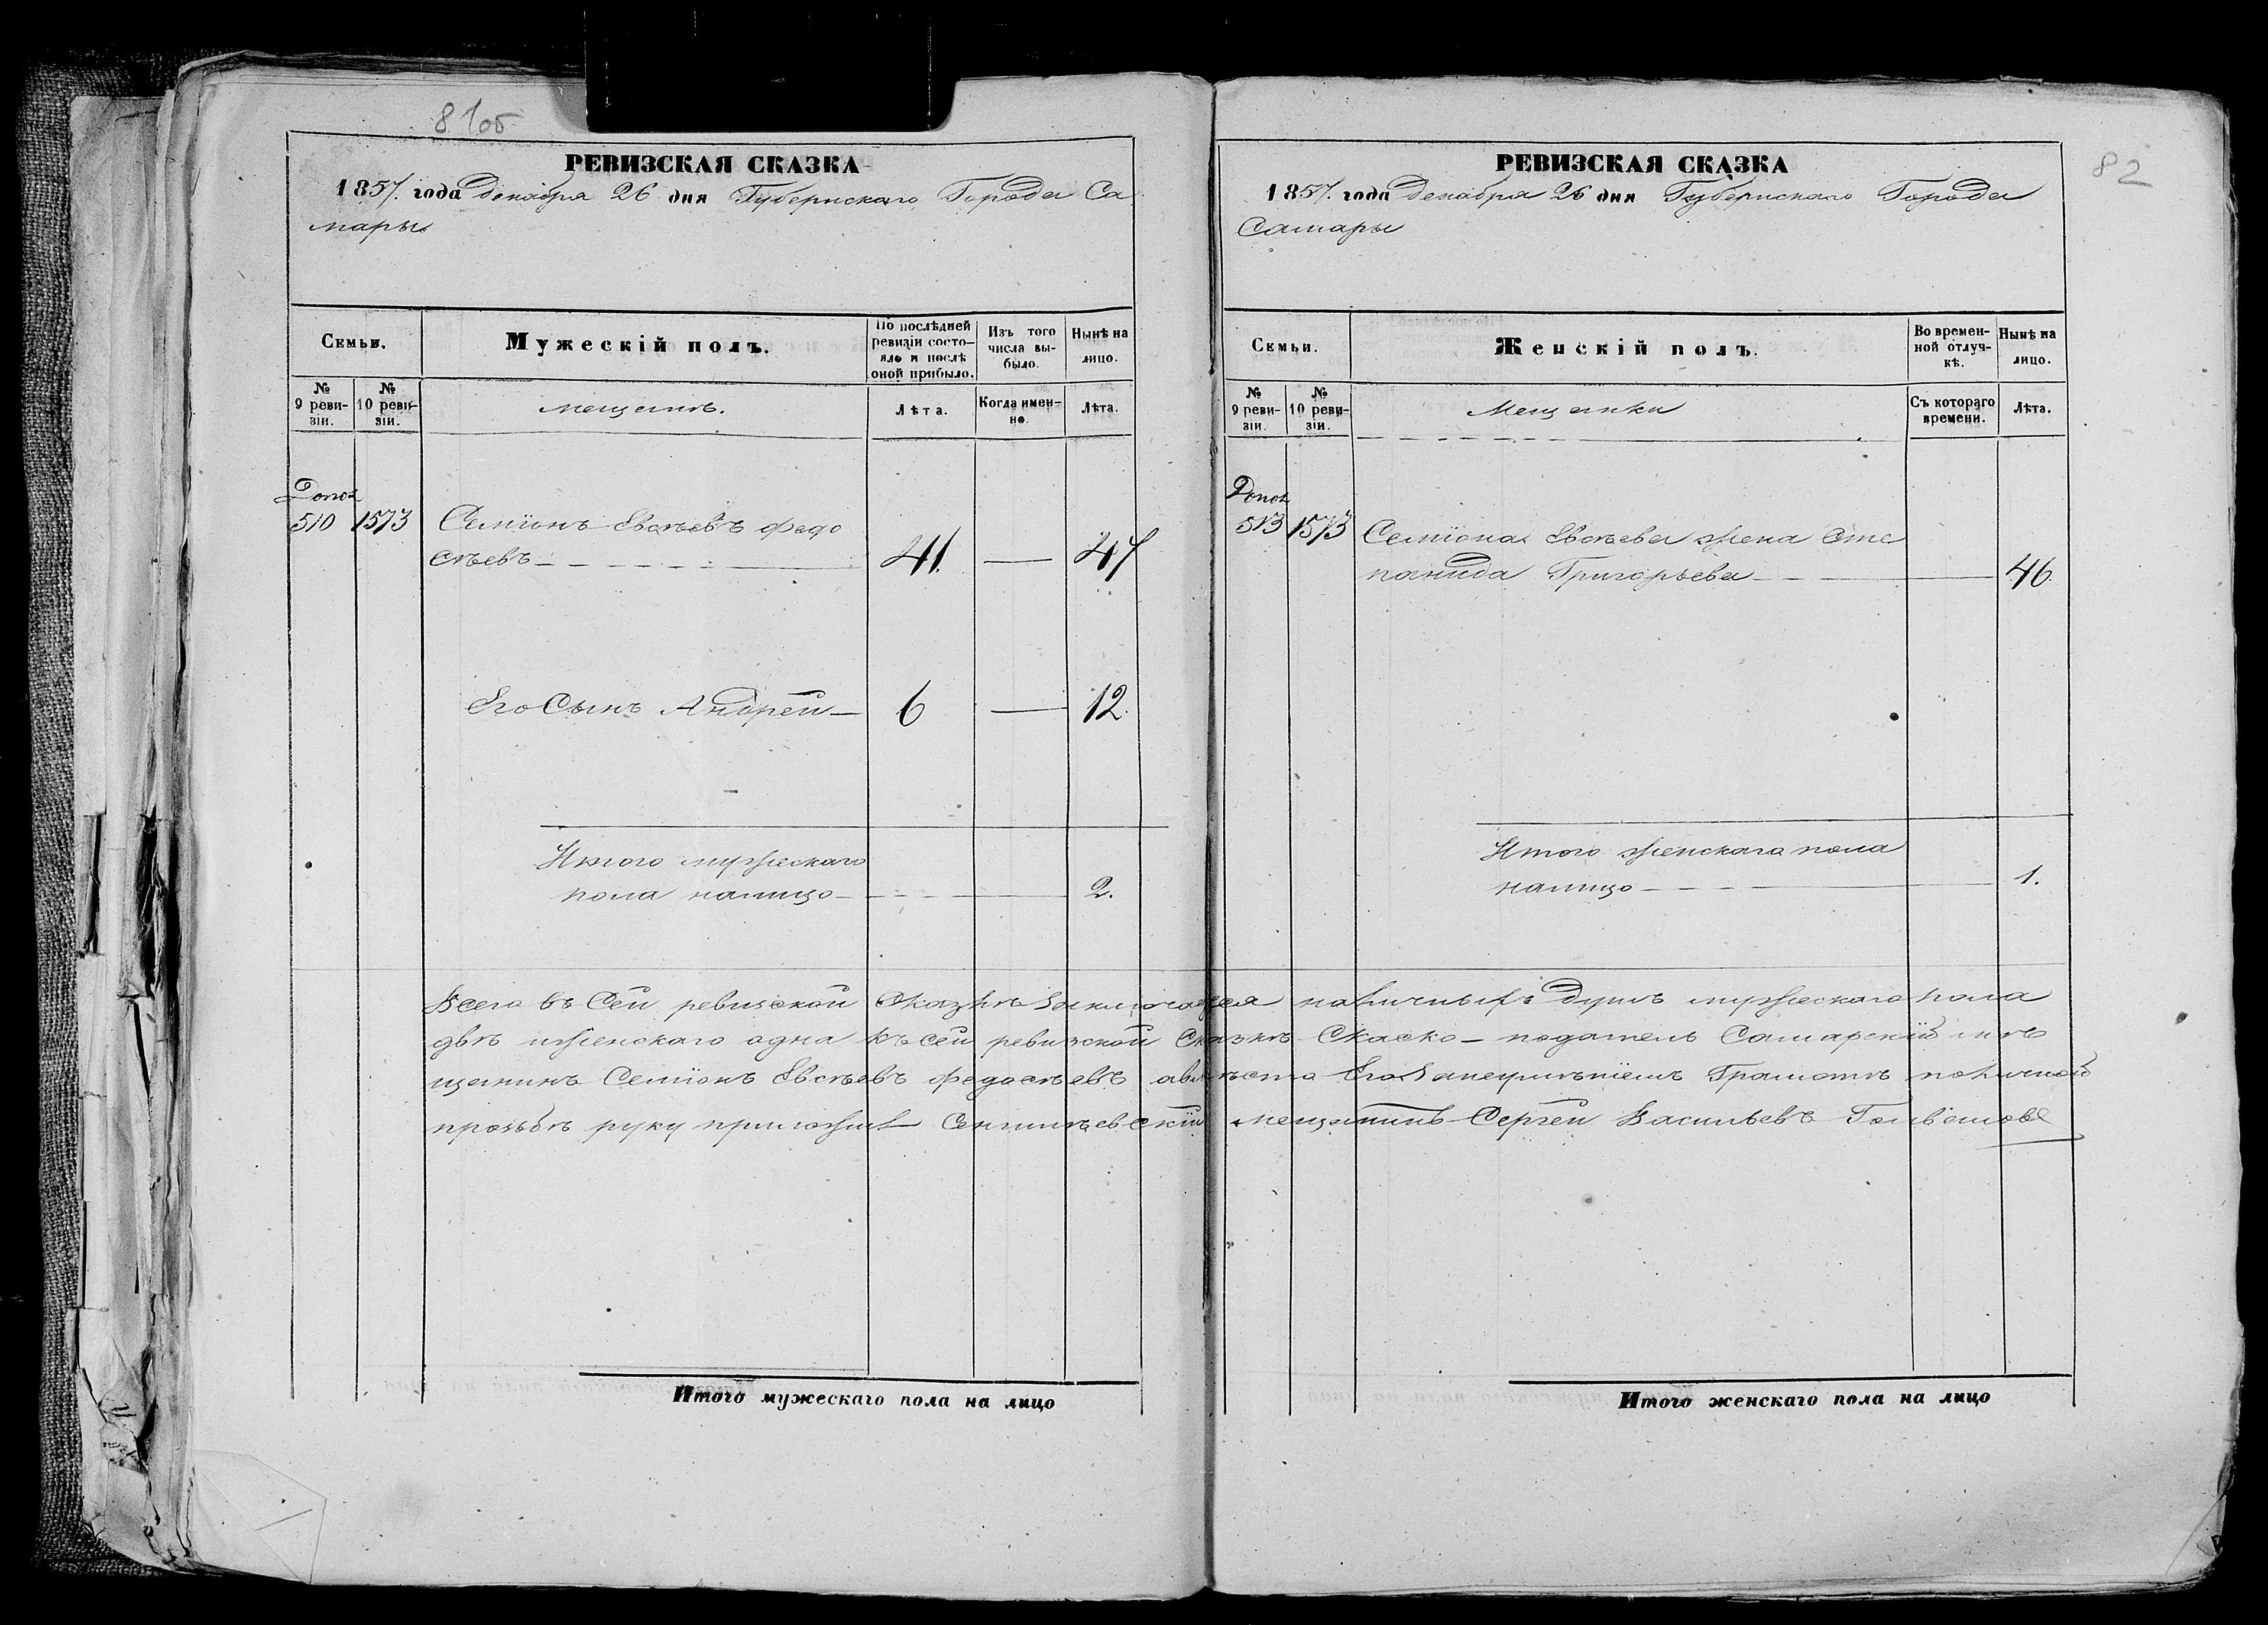 81об
РЕВИЗСКАЯ СКАЗКА
1857. года декабря 26 дня Губернскаго Города Са
мары
Семьи.
Мужескій полъ.
По послѣдней ревизіи состояло и послѣ оной прибыло.
Изъ того числа выбыло.
Нынѣ на лицо.
№ 9 ревизіи.
№ 10 ревизіи.
мещанъ.
Лѣта.
Когда именно.
Лѣта.
Допол
510 1573 Семіонъ Евсѣевъ Федо
сѣевъ 41. — 47
Его Сынъ Андрей — 6 — 12.
Итого мужескаго
пола налицо 2.
Итого мужескаго пола на лицо
82
РЕВИЗСКАЯ СКАЗКА
1857. года декабря 26 дня Губернскаго Города
Самары
Семьи.
Женскій полъ.
Во временной отлучкѣ.
Нынѣ на лицо.
№ 9 ревизіи.
№ 10 ревизіи.
Мещанки
Съ котораго времени.
Лѣта.
Допол
513 1573 Семіона Евсѣева жена Сте
панида Григорьева — 46.
Итого женскаго пола
налицо 1.
Всего въ Сей ревизской Сказкѣ Заключается наличныхъ душъ мужескаго пола
двѣ и женскаго одна къ сей ревизской Сказкѣ Сказко-податель Самарскій мѣ
щанинъ Семіонъ Евсѣевъ Федосѣевъ авмѣсто Его Занеумѣніемъ Грамотѣ поличной
прозьбѣ руку приложилъ мещанинъ Сергей Васильевъ
Итого женскаго пола на лицо